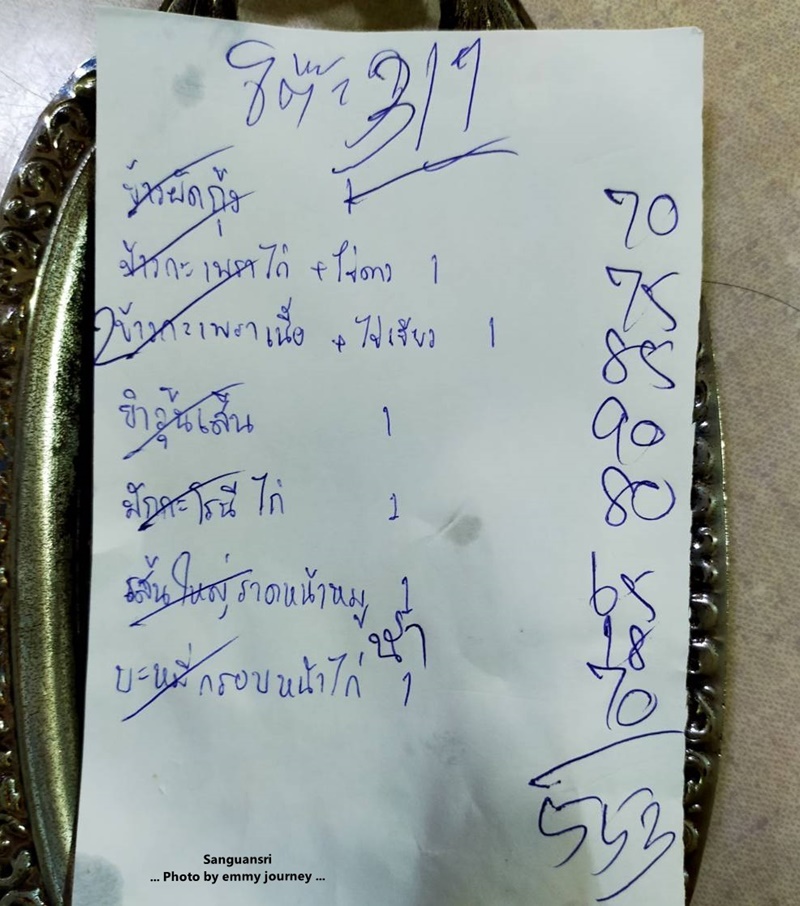 โต๊ะ 3/1
ข้าวผัดกุ้ง 1 70
ข้าวกะเพราไก่ + ไข่ดาว 1 75
ข้าวกะเพราเนื้อ + ไข่เจียว 1 85
ยำวุ้นเส้น 1 90
มักกะโรนีไก่ 1 80
เส้นใหญ่ราดหน้าหมู 1 65
น้ำ 18
บะหมี่กรอบหน้าไก่ 1 70
553
Sanguansri
... Photo by emmy journey ...